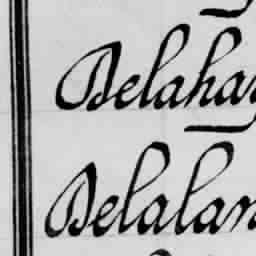 Delahay
Delalan